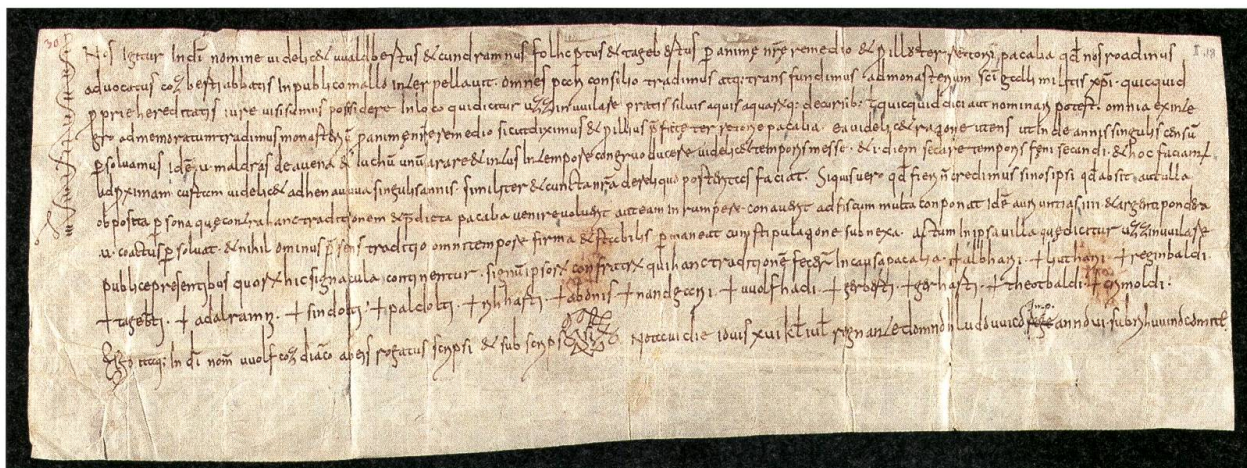 30
I. 18
Nos igitur in dī nomine uuidolt et uualdbertus et cundramnus folhcertus et tagebertus p animę nr̄e remedio et p illa ter pacalia qd nos roadinus
advocatus cozberti abbatis in publico mallo interpellavit. omnes pcon consilio tradimus atq; transfundimus ad monasterium sc̄i galli militis xp̄i. quicquid
pprie hereditatis iure visi sumus possidere in loco qui dicitur uzzinuuilare pratis silvis aquis aquarūq; decursib; t quicquid dici aut nominari potest. omnia ex inte
gro ad memoratum tradimus monasteriū p animę nr̄e remedio sicut diximus et p illius pacalia. ea videlicet ratione utens ut inde annis singulis censū
psoluamus idē v. maldras de avena et iuchū unū arare et intus in tempore congruo ducere videlicet temporis messe. et i. diem secare temporis feni secundi. et hoc faciam
ad pximam curtem videlicet adhenauuia singulis annis. similiter et cuncta nr̄a de reliquo posteritas faciat. Siquis vero qd fieri n̄ credimus si nos ipsi qd absit aut ulla
obposita psona quę contra hanc traditionem et p̄dicta pacalia venire voluerit aut eam inrumpere conaverit ad fiscum multa conponat idē auri untias iii et argenti pondera
v. coactus psolvat. et nihilominus p̄sens traditio omni tempore firma et stabilis pmaneat cum stipulatione subnexa. actum in ipsa villa quę dicitur uzzinuuilare
publice presentibus quorū hic signacula continentur. signū ipsorū confratrū qui hanc traditionē fecer̄ in causa pacalia. + albhari. + huthari. + reginbaldi.
+ tageb̄ti. + adalrammi. + sindolti. + paldolti. + ruhhafti. + abonis. + nandgeri. + uuolfhadi. + gerberti. + gerhafti. + theotbaldi. + crimoldi.
Ego itaq; in dī nom̄ uuolfcoz diaco rogatus scripsi et subscripsi. Notavi die iovis xvi kl iul regnante domno hludovvico imp. anno vi sub comite.